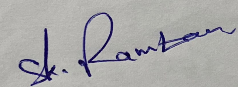 Sk. Ramzan